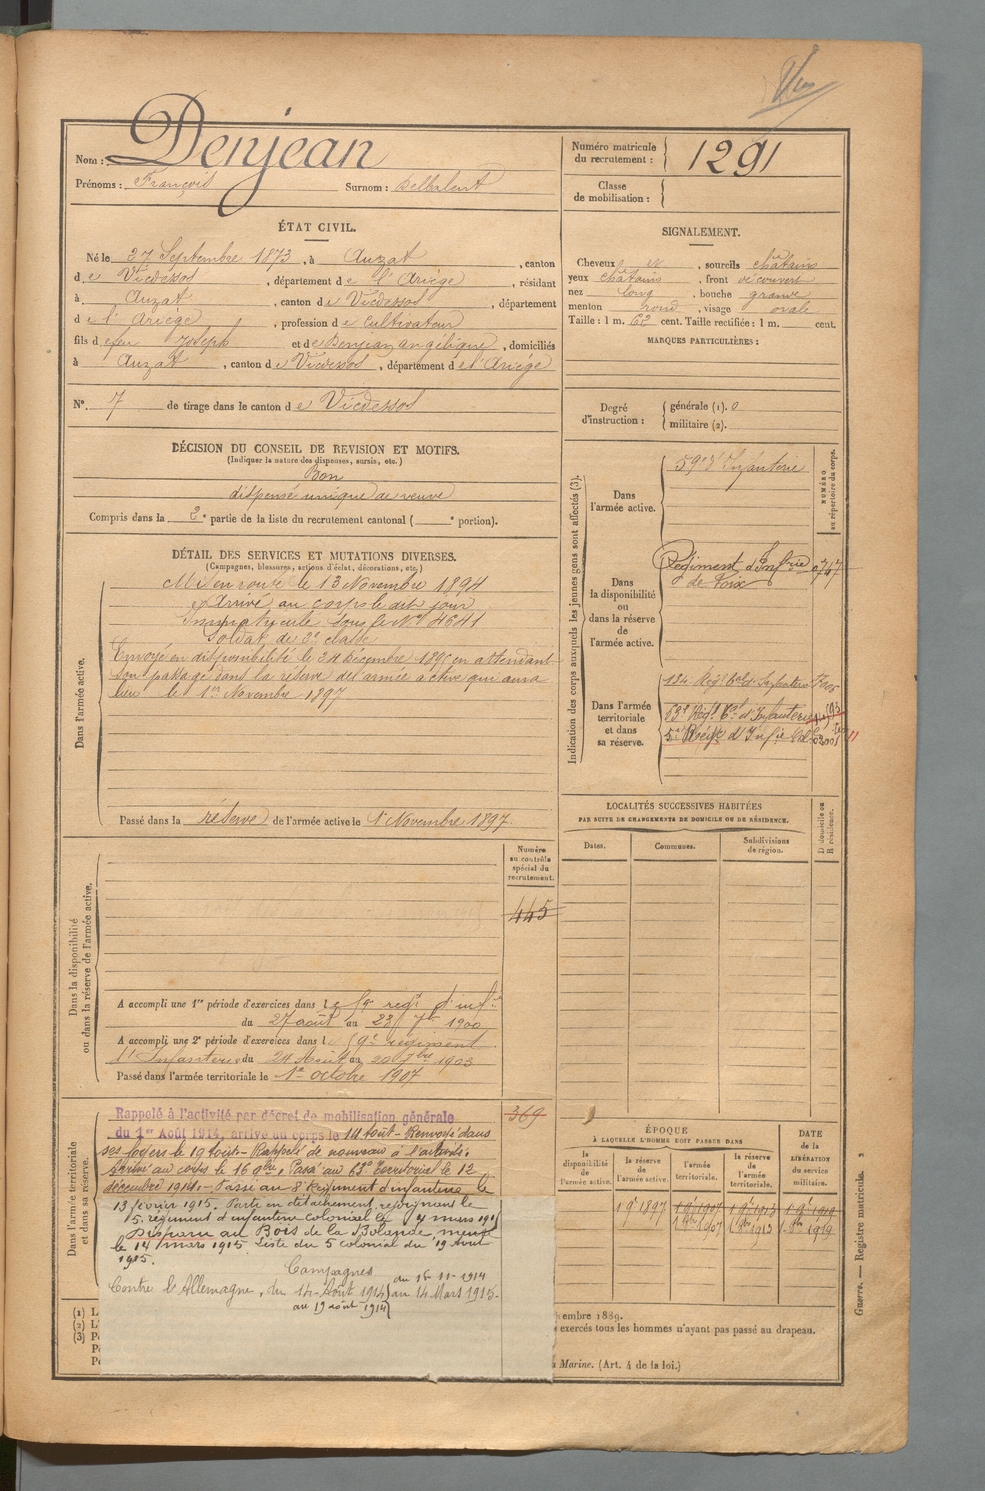 Nom : Denjean
Prénoms : François Surnom :
Numéro matricule du recrutement : 1291
Classe de mobilisation :
ÉTAT CIVIL.
Né le 27 Septembre 1873, à Auzat, canton
de Vicdessos, département de l'Ariège, résidant
à Auzat, canton de Vicdessos, département
de l'Ariège, profession de cultivateur
fils de feu Joseph et de Denjean angélique, domiciliés
à Auzat, canton de Vicdessos, département de l'Ariège
N° 7 de tirage dans le canton de Vicdessos
DÉCISION DU CONSEIL DE REVISION ET MOTIFS.
(Indiquer la nature des dispenses, sursis, etc.)
Bon
dispensé unique de veuve
Compris dans la 2e partie de la liste du recrutement cantonal ( e portion).
DÉTAIL DES SERVICES ET MUTATIONS DIVERSES.
(Campagnes, blessures, actions d'éclat, décorations, etc.)
Dans l'armée active.
Mis en route le 13 Novembre 1894
Arrivé au corps le dit jour
Immatriculé sous le N° 4641
Soldat de 2e classe
Envoyé en disponibilité le 24 Décembre 1895 en attendant
son passage dans la réserve de l'armée active qui aura
lieu le 1er Novembre 1897
Passé dans la réserve de l'armée active le 1er Novembre 1897.
Dans la disponibilité ou dans la réserve de l'armée active.
Numéro au contrôle spécial du recrutement.
445
A accompli une 1re période d'exercices dans le 59e regt d'inf
du 27 août au 23 7bre 1900
A accompli une 2e période d'exercices dans le 59e régiment
d'Infanterie du 24 Août au 20 7bre 1903
Passé dans l'armée territoriale le 1er octobre 1907
Dans l'armée territoriale et dans sa réserve.
369
Rappelé à l'activité par décret de mobilisation générale
du 1er Août 1914, arrivé au corps le 14 Août - Renvoyé dans
ses foyers le 19 Août - Rappelé de nouveau à l'activité.
Arrivé au corps le 16 9bre. Passé au 63e territorial le 12
décembre 1914. - Passé au 8e Régiment d'infanterie le
13 février 1915. Parti en détachement, rejoignant le
5e régiment d'infanterie colonial le 7 mars 1915
Disparu au Bois de la Bolande
le 14 mars 1915. Liste du 5e colonial du 19 Avril
1915.
Campagnes
Contre l'Allemagne, du 14 Août 1914 au 19 août 1914
du 16-11-1914 au 14 Mars 1915.
SIGNALEMENT.
Cheveux et, sourcils châtains
yeux châtains, front découvert
nez long, bouche grande
menton rond, visage ovale
Taille : 1 m. 62 cent. Taille rectifiée : 1 m. cent.
MARQUES PARTICULIÈRES :
Degré d'instruction : générale (1). 0
militaire (2).
Indication des corps auxquels les jeunes gens sont affectés (3).
NUMÉRO au répertoire du corps.
Dans l'armée active.
59e d'Infanterie
Dans la disponibilité ou dans la réserve de l'armée active.
Régiment d'Infrie
de Foix
Dans l'armée territoriale et dans sa réserve.
134 Régt tal d'Infanterie
63e Régt tal d'Infanterie
5e Régt d'Infie Cole
LOCALITÉS SUCCESSIVES HABITÉES
PAR SUITE DE CHANGEMENTS DE DOMICILE OU DE RÉSIDENCE.
Dates. Communes. Subdivisions de région. D domicile ou R résidence.
ÉPOQUE
À LAQUELLE L'HOMME DOIT PASSER DANS
DATE de la LIBÉRATION du service militaire.
la disponibilité de l'armée active. la réserve de l'armée active. l'armée territoriale. la réserve de l'armée territoriale.
1 9e 1897 1 9e 1907 1 9e 1913 1 9e 1919
1 8bre 1907 1 8bre 1913 1 8bre 1919
(1) L
(2) L'
(3) P
embre 1889.
exercés tous les hommes n'ayant pas passé au drapeau.
Marine. (Art. 4 de la loi.)
Guerre. — Registre matricule. 2